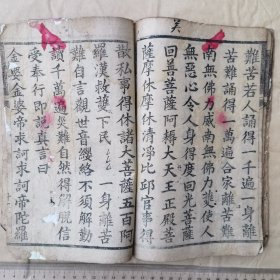 吴
難苦若人誦得一千遍一身離
苦難誦得一萬遍合家離苦難
南無佛力威南無佛力護使人
無惡心令人身得度回光菩薩
回善菩薩阿耨大天王正殿菩
薩摩休摩休清淨比邱官事得
散私事得休諸大菩薩五百阿
羅漢救護下民 一身離苦
難自言觀世音纓絡不須解勤
讀千萬遍災難自然得解脫信
受奉行即說真言曰
金婆金婆帝求訶求訶帝陀羅